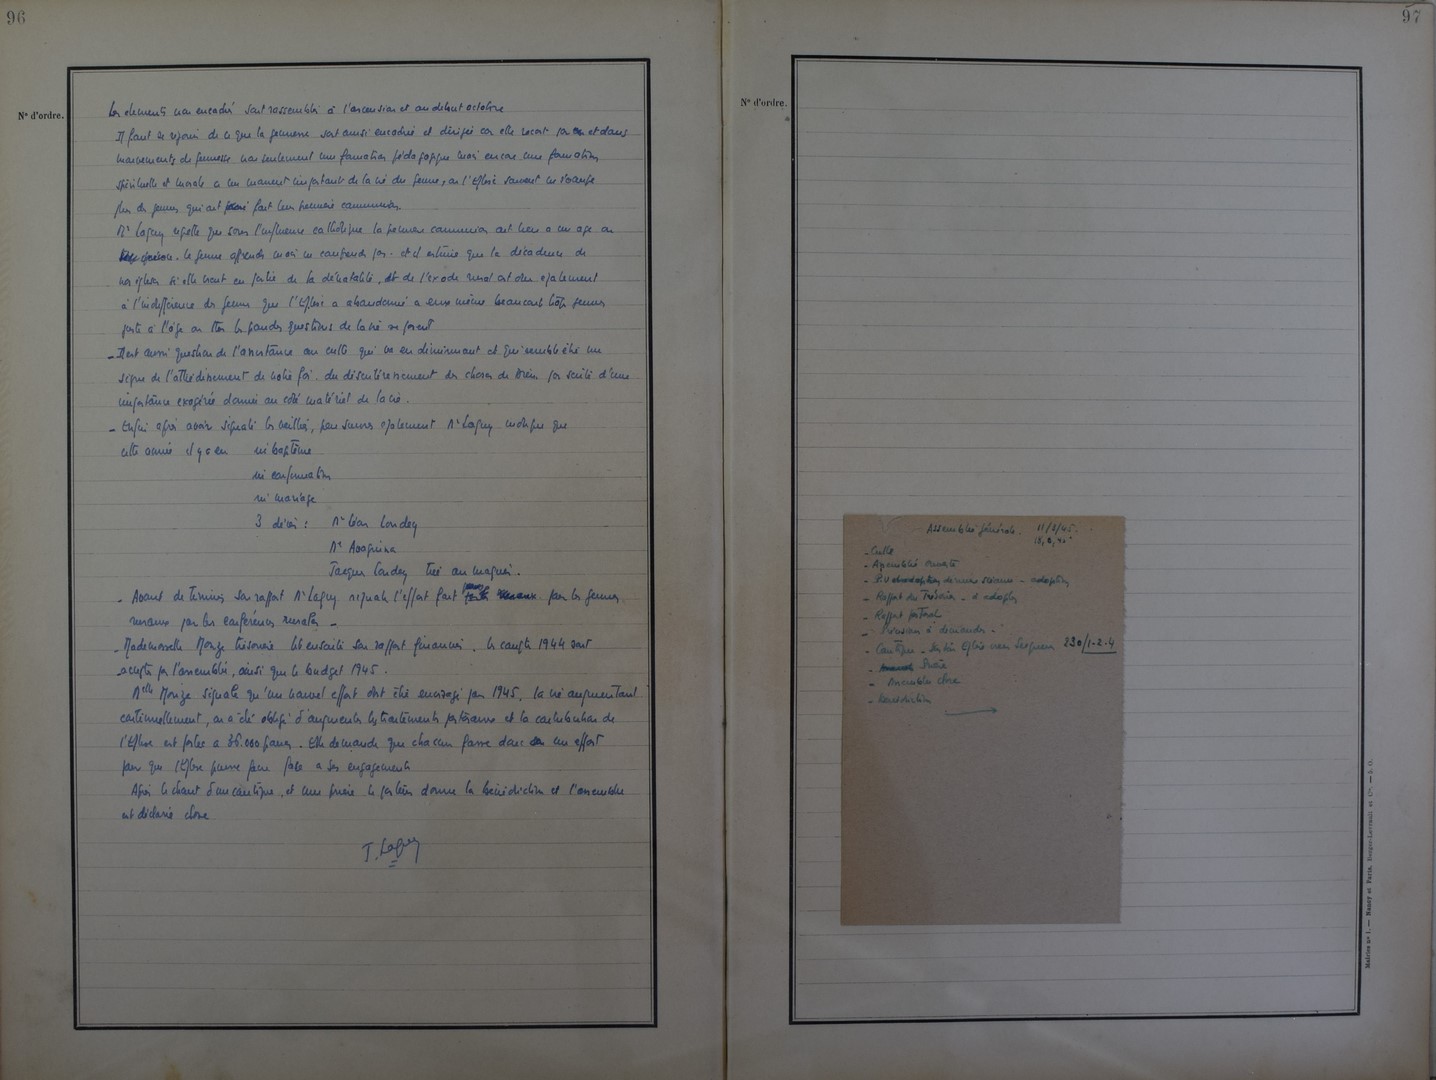 96
N° d'ordre.
Les elements non encadré sont rassemblés à l'ascension et au debut octobre
Il faut se rejouir de ce que la jeunesse soit ainsi encadrée et dirigée car elle reçoit par et dans
mouvements de jeunesse non seulement une formation pédagogique mais encore une formation
spirituelle et morale a un moment important de la vie du jeune, car l'Eglise souvent ne s'occupe
plus des jeunes qui ont fait leur premiere communion.
Mr Laguy rapelle que sous l'influence catholique la premiere communion ont lieu a un age ou
le jeune apprends mais ne comprends pas. et il estime que la décadence de
nos églises si elle vient en partie de la dénatalité, et de l'exode rural est due egalement
à l'indifférence des jeunes que l'Eglise a abandonné a eux même beaucoup trop jeunes
juste à l'âge ou les grandes questions de la vie se posent
- Il est aussi question de l'assistance au culte qui va en diminuant et qui semble être un
signe de l'attiédissement de notre foi. du désintéressement des choses de Dieu par suite d'une
importance exagérée donnée au coté matériel de la vie.
- Enfin après avoir signalé les veillées, peu suivies egalement Mr Laguy indique que
cette année il y a eu ni baptême
ni confirmation
ni mariage
3 décès : Mr Léon Condey
Mr
Jacques Condey tué au maquis.
- Avant de terminer son rapport Mr Laguy signale l'effort fait par les jeunes
ruraux par les conférences rurales -
- Mademoiselle Monge trésoriere lit ensuite son rapport financier. les compte 1944 sont
accepté par l'assemblée, ainsi que le budget 1945.
Melle Monge signale qu'un nouvel effort doit être envisagé pour 1945, la vie augmentant
continuellement, on a été obligé d'augmenter les traitements pastoraux et la contribution de
l'Eglise est portée a 36.000 francs. Elle demande que chacun fasse donc un effort
pour que l'Eglise puisse faire face a ses engagements
Après le chant d'un cantique, et une prière le pasteur donne la bénédiction et l'assemblée
est déclarée close
J. Laguy
97
N° d'ordre.
Assemblée générale. 11/2/45.
- Culte
- Assemblée ouverte
- P.V derniere séance - adoption
- Rapport du Trésorier - adopter
- Rapport pastoral
- à demander -
- Cantique - 230/1-2-4
- Prière
- Assemblée close
- Bénédiction
Mairies n° 1. — Nancy et Paris, Berger-Levrault et Cie. —